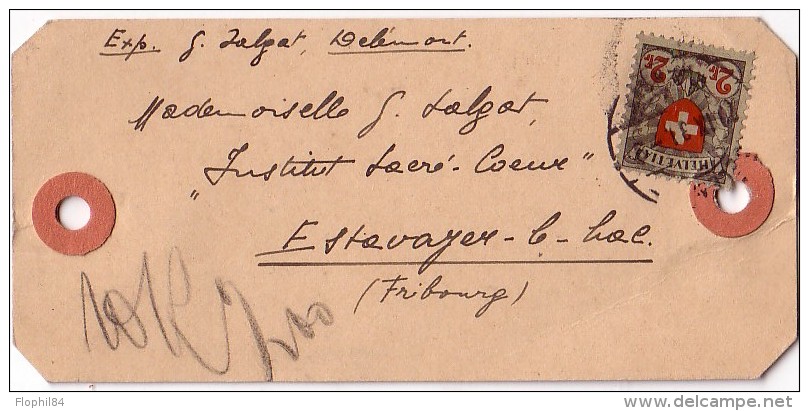 Exp. G. Salgat, Delémont.
Mademoiselle G. Salgat,
"Institut Sacré-Coeur"
Estavayer-l-Lac.
(Fribourg)
2 Fr. 2 Fr.
HELVETIA
Flophil84
delcampe.net